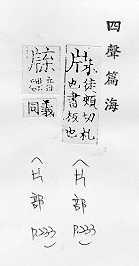 四聲篇海
徒頰切札
也書板也
(片部 P233)
義
同
(片部 P233)